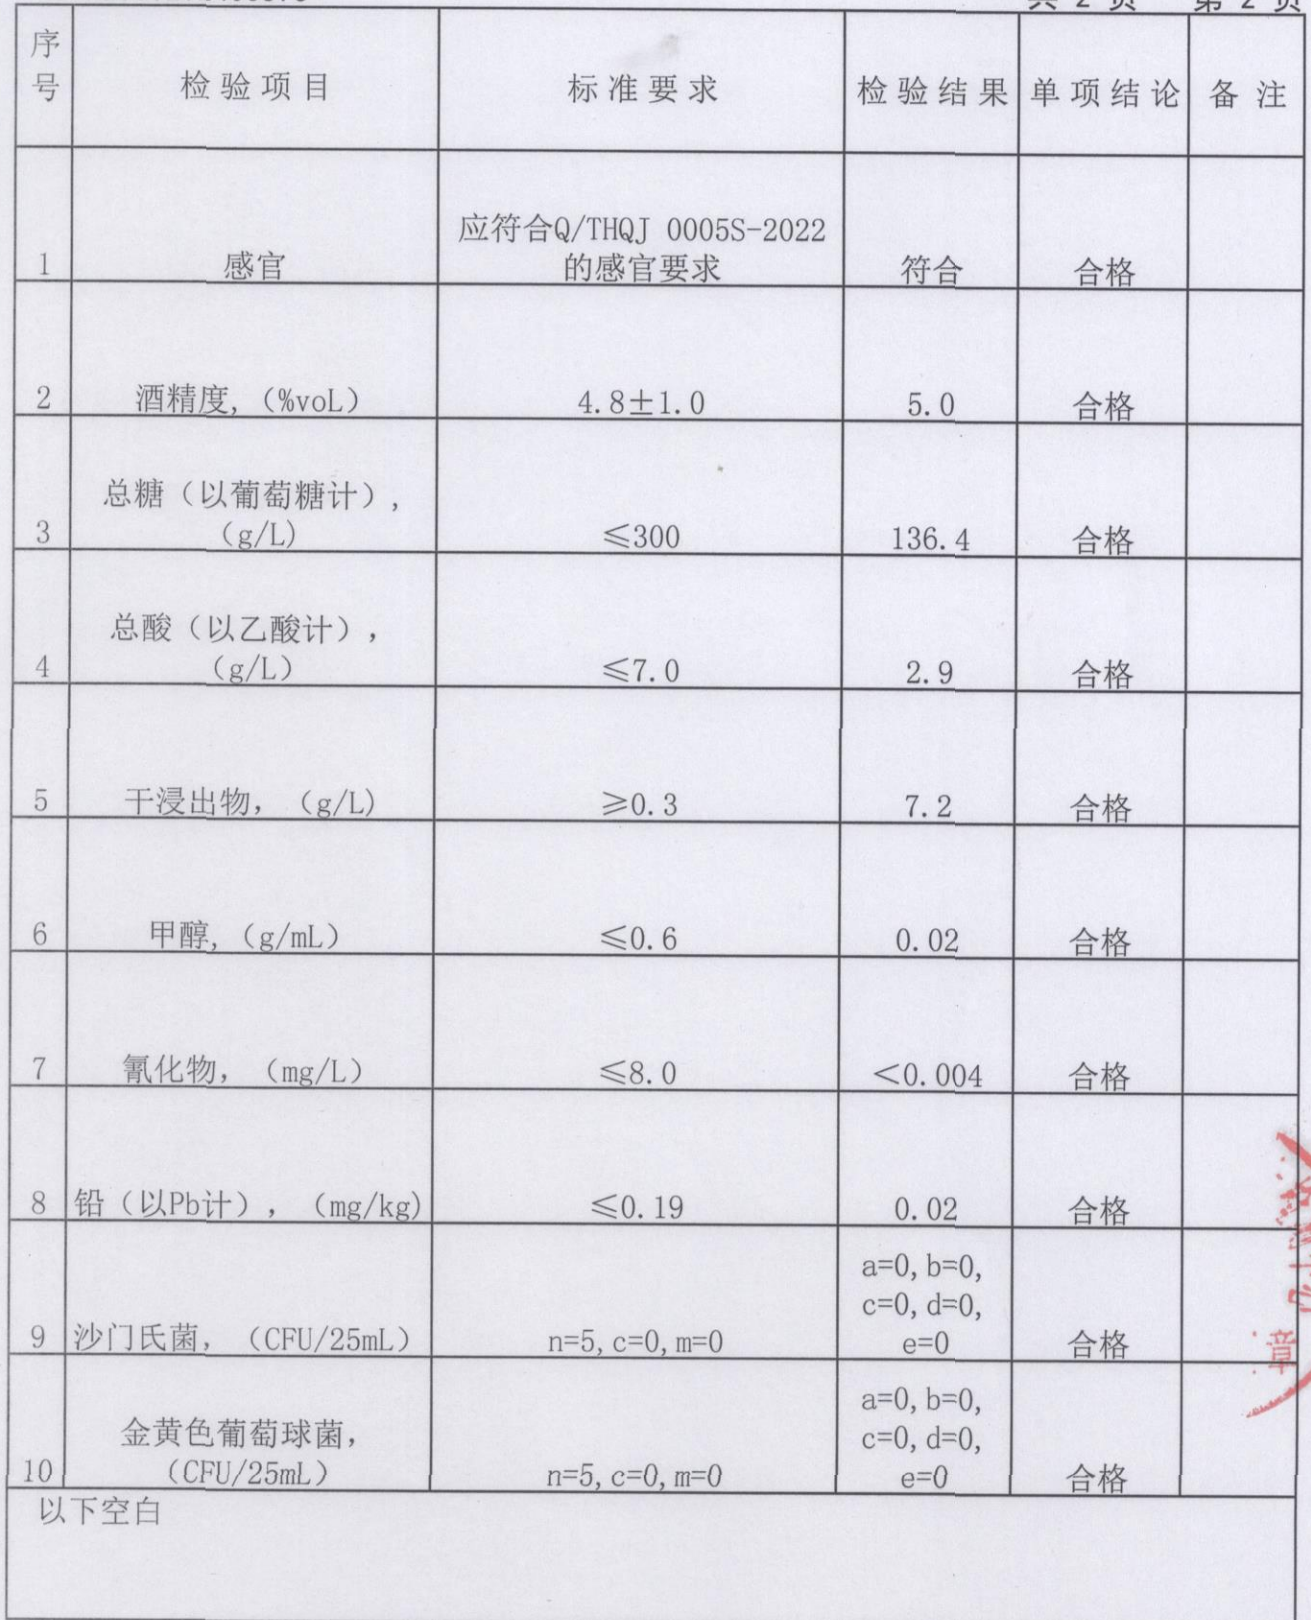 共 2 页 第 2 页
序号 检验项目 标准要求 检验结果 单项结论 备注
1 感官 应符合Q/THQJ 0005S-2022
的感官要求 符合 合格
2 酒精度,（%voL） 4.8±1.0 5.0 合格
总糖（以葡萄糖计）,
3 （g/L) ≤300 136.4 合格
总酸（以乙酸计）,
4 （g/L） ≤7.0 2.9 合格
5 干浸出物, （g/L) ≥0.3 7.2 合格
6 甲醇,（g/mL） ≤0.6 0.02 合格
7 氰化物, （mg/L） ≤8.0 <0.004 合格
8 铅（以Pb计）, （mg/kg) ≤0.19 0.02 合格
a=0,b=0,
c=0,d=0,
9 沙门氏菌, （CFU/25mL） n=5,c=0,m=0 e=0 合格
a=0,b=0,
金黄色葡萄球菌, c=0,d=0,
10 （CFU/25mL） n=5,c=0,m=0 e=0 合格
以下空白
章